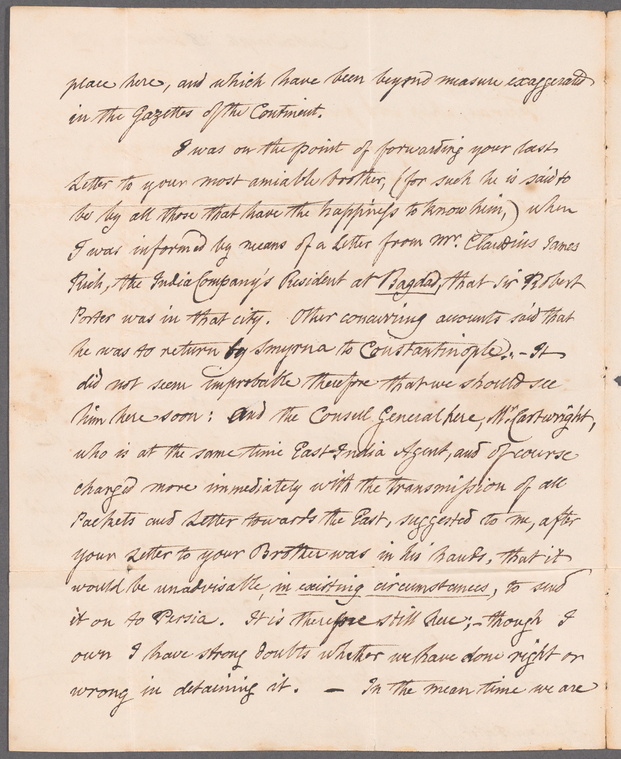 place here, and which have been beyond measure exaggerated
in the Gazettes of the Continent.
I was on the point of forwarding your last
Letter to your most amiable brother, (for such he is said to
be by all those that have the happiness to know him,) when
I was informed by means of a Letter from Mr. Claudius James
Rich, the India Company's Resident at Bagdad, that Sir Robert
Porter was in that city. Other concurring accounts said that
he was to return by Smyrna to Constantinople. - It
did not seem improbable therefore that we should see
him here soon: And the Consul General here, Mr. Cartwright,
who is at the same time East-India Agent, and of course
charged more immediately with the transmission of all
Packets and Letter towards the East, suggested to me, after
your Letter to your Brother was in his hands, that it
would be unadvisable, in existing circumstances, to send
it on to Persia. It is therefore still here; - though I
own I have strong doubts whether we have done right or
wrong in detaining it. — In the mean time we are